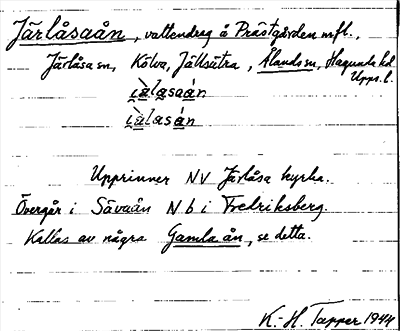 Järlåsaån, vattendrag å Prästgården mfl.,
Järlåsa sn, Kölva, Jällsätra, Ålands sn, Hagunda hd
Upps. l.
i̯ä̀lasaán
i̯ä̀lasán
Upprinner NV Järlåsa kyrka.
Övergår i Sävaån N b i Fredriksberg.
Kallas av några Gamla ån, se detta.
K.-H. Tapper 1944